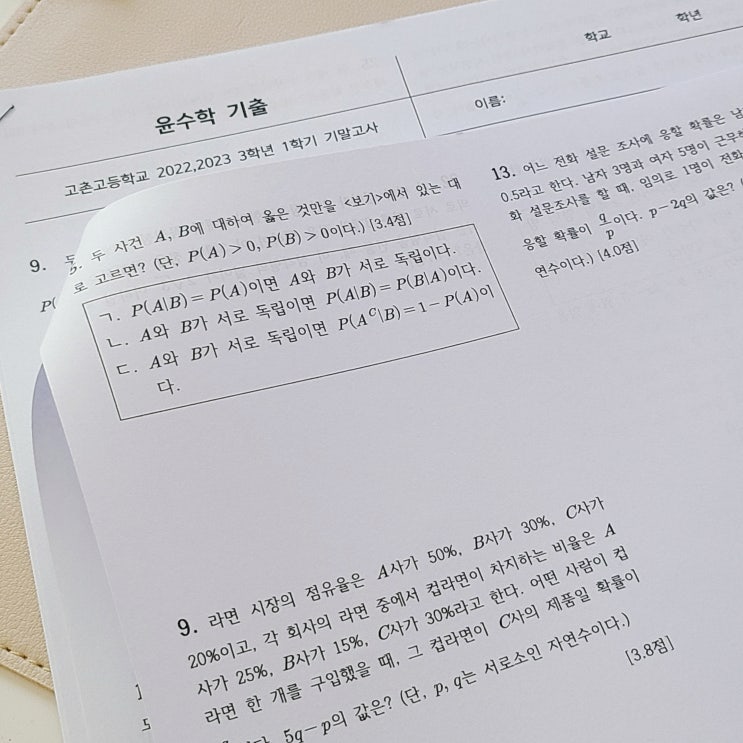 학교 학년
윤수학 기출
이름:
고촌고등학교 2022,2023 3학년 1학기 기말고사
9.
P(
두 사건 A, B에 대하여 옳은 것만을 <보기>에서 있는 대
로 고르면? (단, P(A)>0, P(B)>0이다.) [3.4점]
ㄱ. P(A|B)=P(A)이면 A와 B가 서로 독립이다.
ㄴ. A와 B가 서로 독립이면 P(A|B)=P(B|A)이다.
ㄷ. A와 B가 서로 독립이면 P(A^C|B)=1-P(A)이
다.
9. 라면 시장의 점유율은 A사가 50%, B사가 30%, C사가
20%이고, 각 회사의 라면 중에서 컵라면이 차지하는 비율은 A
사가 25%, B사가 15%, C사가 30%라고 한다. 어떤 사람이 컵
라면 한 개를 구입했을 때, 그 컵라면이 C사의 제품일 확률이
5q-p의 값은? (단, p, q는 서로소인 자연수이다.)
[3.8점]
13. 어느 전화 설문 조사에 응할 확률은 남
0.5라고 한다. 남자 3명과 여자 5명이
화 설문조사를 할 때, 임의로 1명이 전화
응할 확률이 q/p이다. p-2q의 값은?
연수이다.) [4.0점]